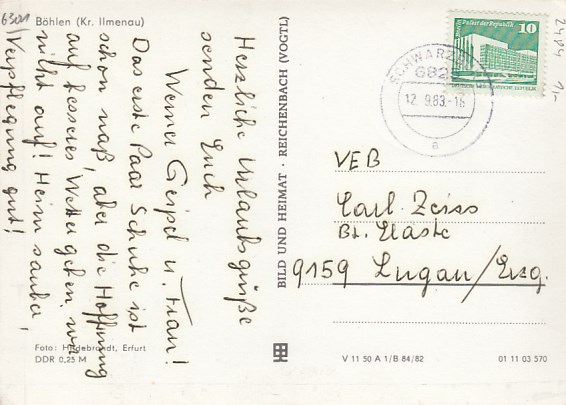 6301
Böhlen (Kr. Ilmenau)
Herzliche Urlaubsgrüße
senden Euch
Werner Geipel u. Frau!
Das erste Paar Schuhe ist
schon naß, aber die Hoffnung
auf besseres Wetter geben wir
nicht auf! Heim sauber,
Verpflegung gut!
Foto: Hildebrandt, Erfurt
DDR 0,25 M
BILD UND HEIMAT · REICHENBACH (VOGTL)
10
682
12.9.83.-16
a
VEB
Carl Zeiss
Bt. Elaste
9159 Lugau/Erzg.
V 11 50 A 1/B 84/82
01 11 03 570